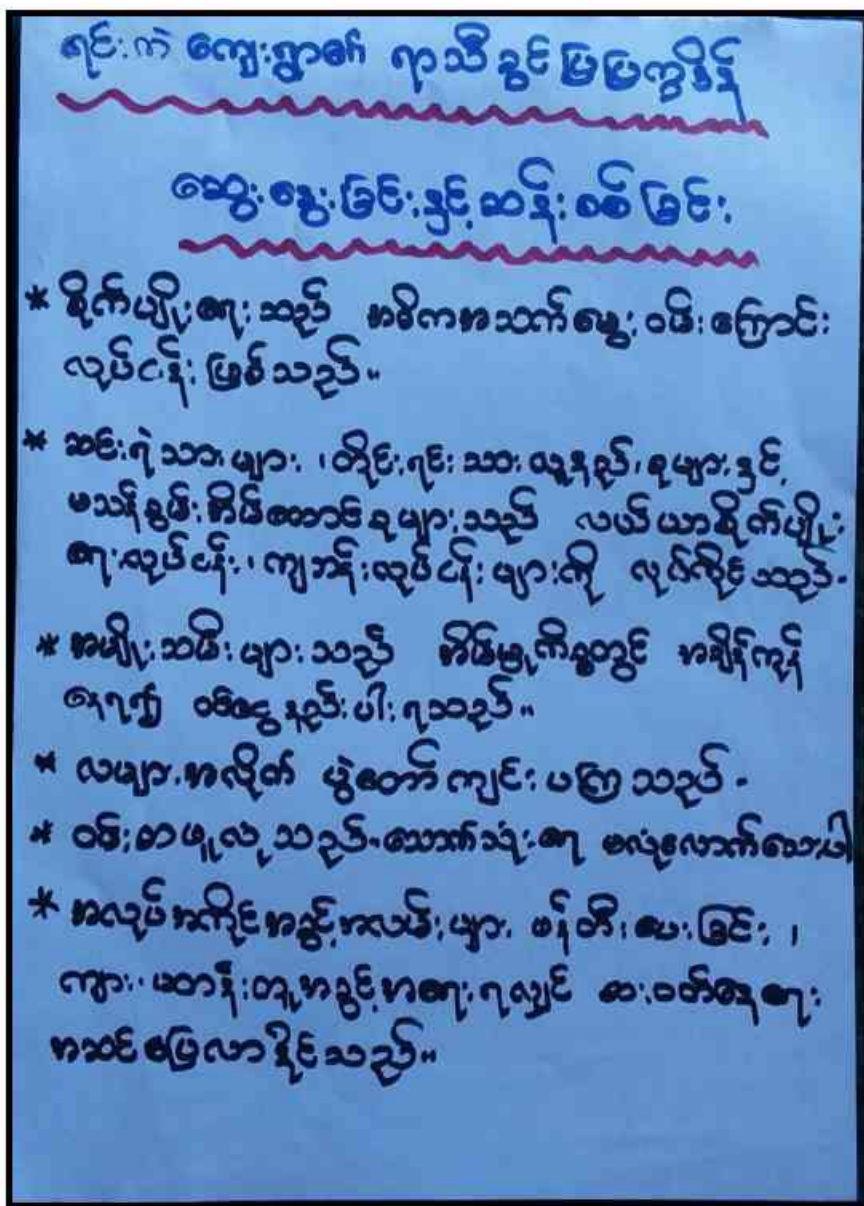 ရင်းကဲ ကျေးရွာ၏ ရာသီခွင်ပြပြက္ခဒိန်
ဆွေးနွေးခြင်းနှင့်ဆန်းစစ်ခြင်း
* စိုက်ပျိုးရေးသည် အဓိကအသက်မွေးဝမ်းကြောင်း
လုပ်ငန်းဖြစ်သည်။
* ဆင်းရဲသားများ၊ တိုင်းရင်းသားလူနည်းစုများနှင့်
မသန်စွမ်းအိမ်ထောင်စုများသည် လယ်ယာစိုက်ပျိုး
ရေးလုပ်ငန်း၊ ကျဘန်းလုပ်ငန်းများကို လုပ်ကိုင်သည်။
* အမျိုးသမီးများသည် အိမ်မှုကိစ္စတွင် အချိန်ကုန်
နေရ၍ ဝင်ငွေနည်းပါးရသည်။
* လများအလိုက် ပွဲတော်ကျင်းပကြသည်။
* ဝမ်းစာဖူလုံသည်။ သောက်သုံးရေ မလုံလောက်သေးပါ
* အလုပ်အကိုင်အခွင့်အလမ်းများ ဖန်တီးပေးခြင်း၊
ကျား၊မတန်းတူအခွင့်အရေးရလျှင် စားဝတ်နေရေး
အဆင်ပြေလာနိုင်သည်။